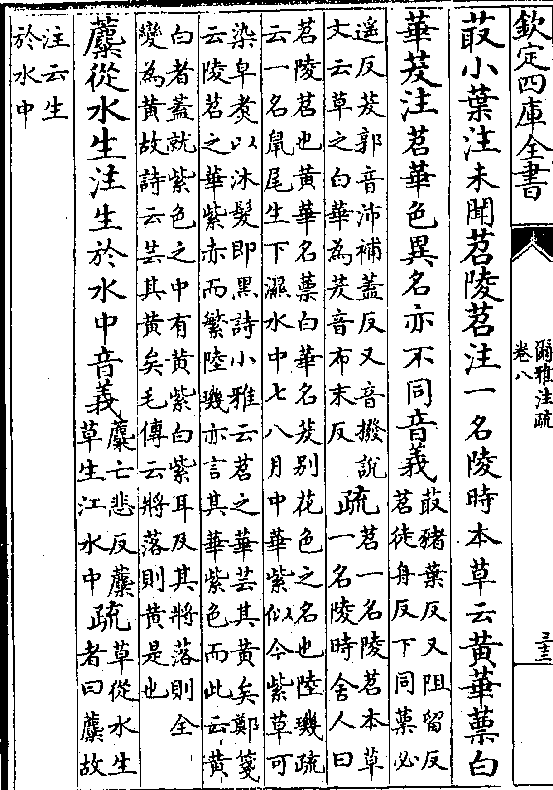 欽定四庫全書
爾雅注疏
卷八
三十三
菆小葉注未聞苕陵苕注一名陵時本草云黃華蔈白
華茇注苕華色異名亦不同音義菆豬葉反又阻留反
苕徒身反下同蔈必
遥反茇郭音沛補蓋反又音撥說
文云草之白華為茇音布末反疏苕一名陵苕本草
一名陵時舍人曰
苕陵苕也黃華名蔈白華名茇别花色之名也陸璣疏
云一名䑕尾生下濕水中七八月中華紫似今紫草可
染皁煑以沐髮即黑詩小雅云苕之華芸其黃矣鄭箋
云陵苕之華紫赤而繁陸璣亦言其華紫色而此云黃
白者蓋就紫色之中有黃紫白紫耳及其將落則全
變為黃故詩云芸其黃矣毛傳云將落則黃是也
蘪從水生注生於水中音義蘪亡悲反蘪
草生江水中疏草從水生
者曰蘪故
注云生
於水中